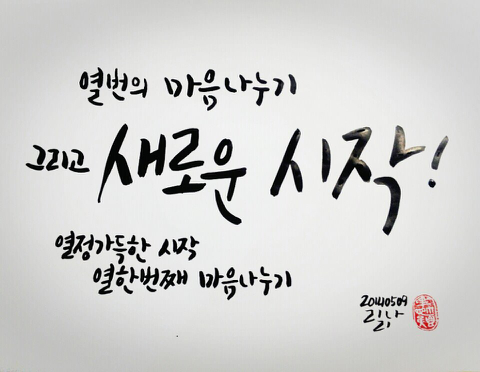 열번의 마음나누기
그리고 새로운 시작!
열정가득한 시작
열한번째 마음나누기
20140509